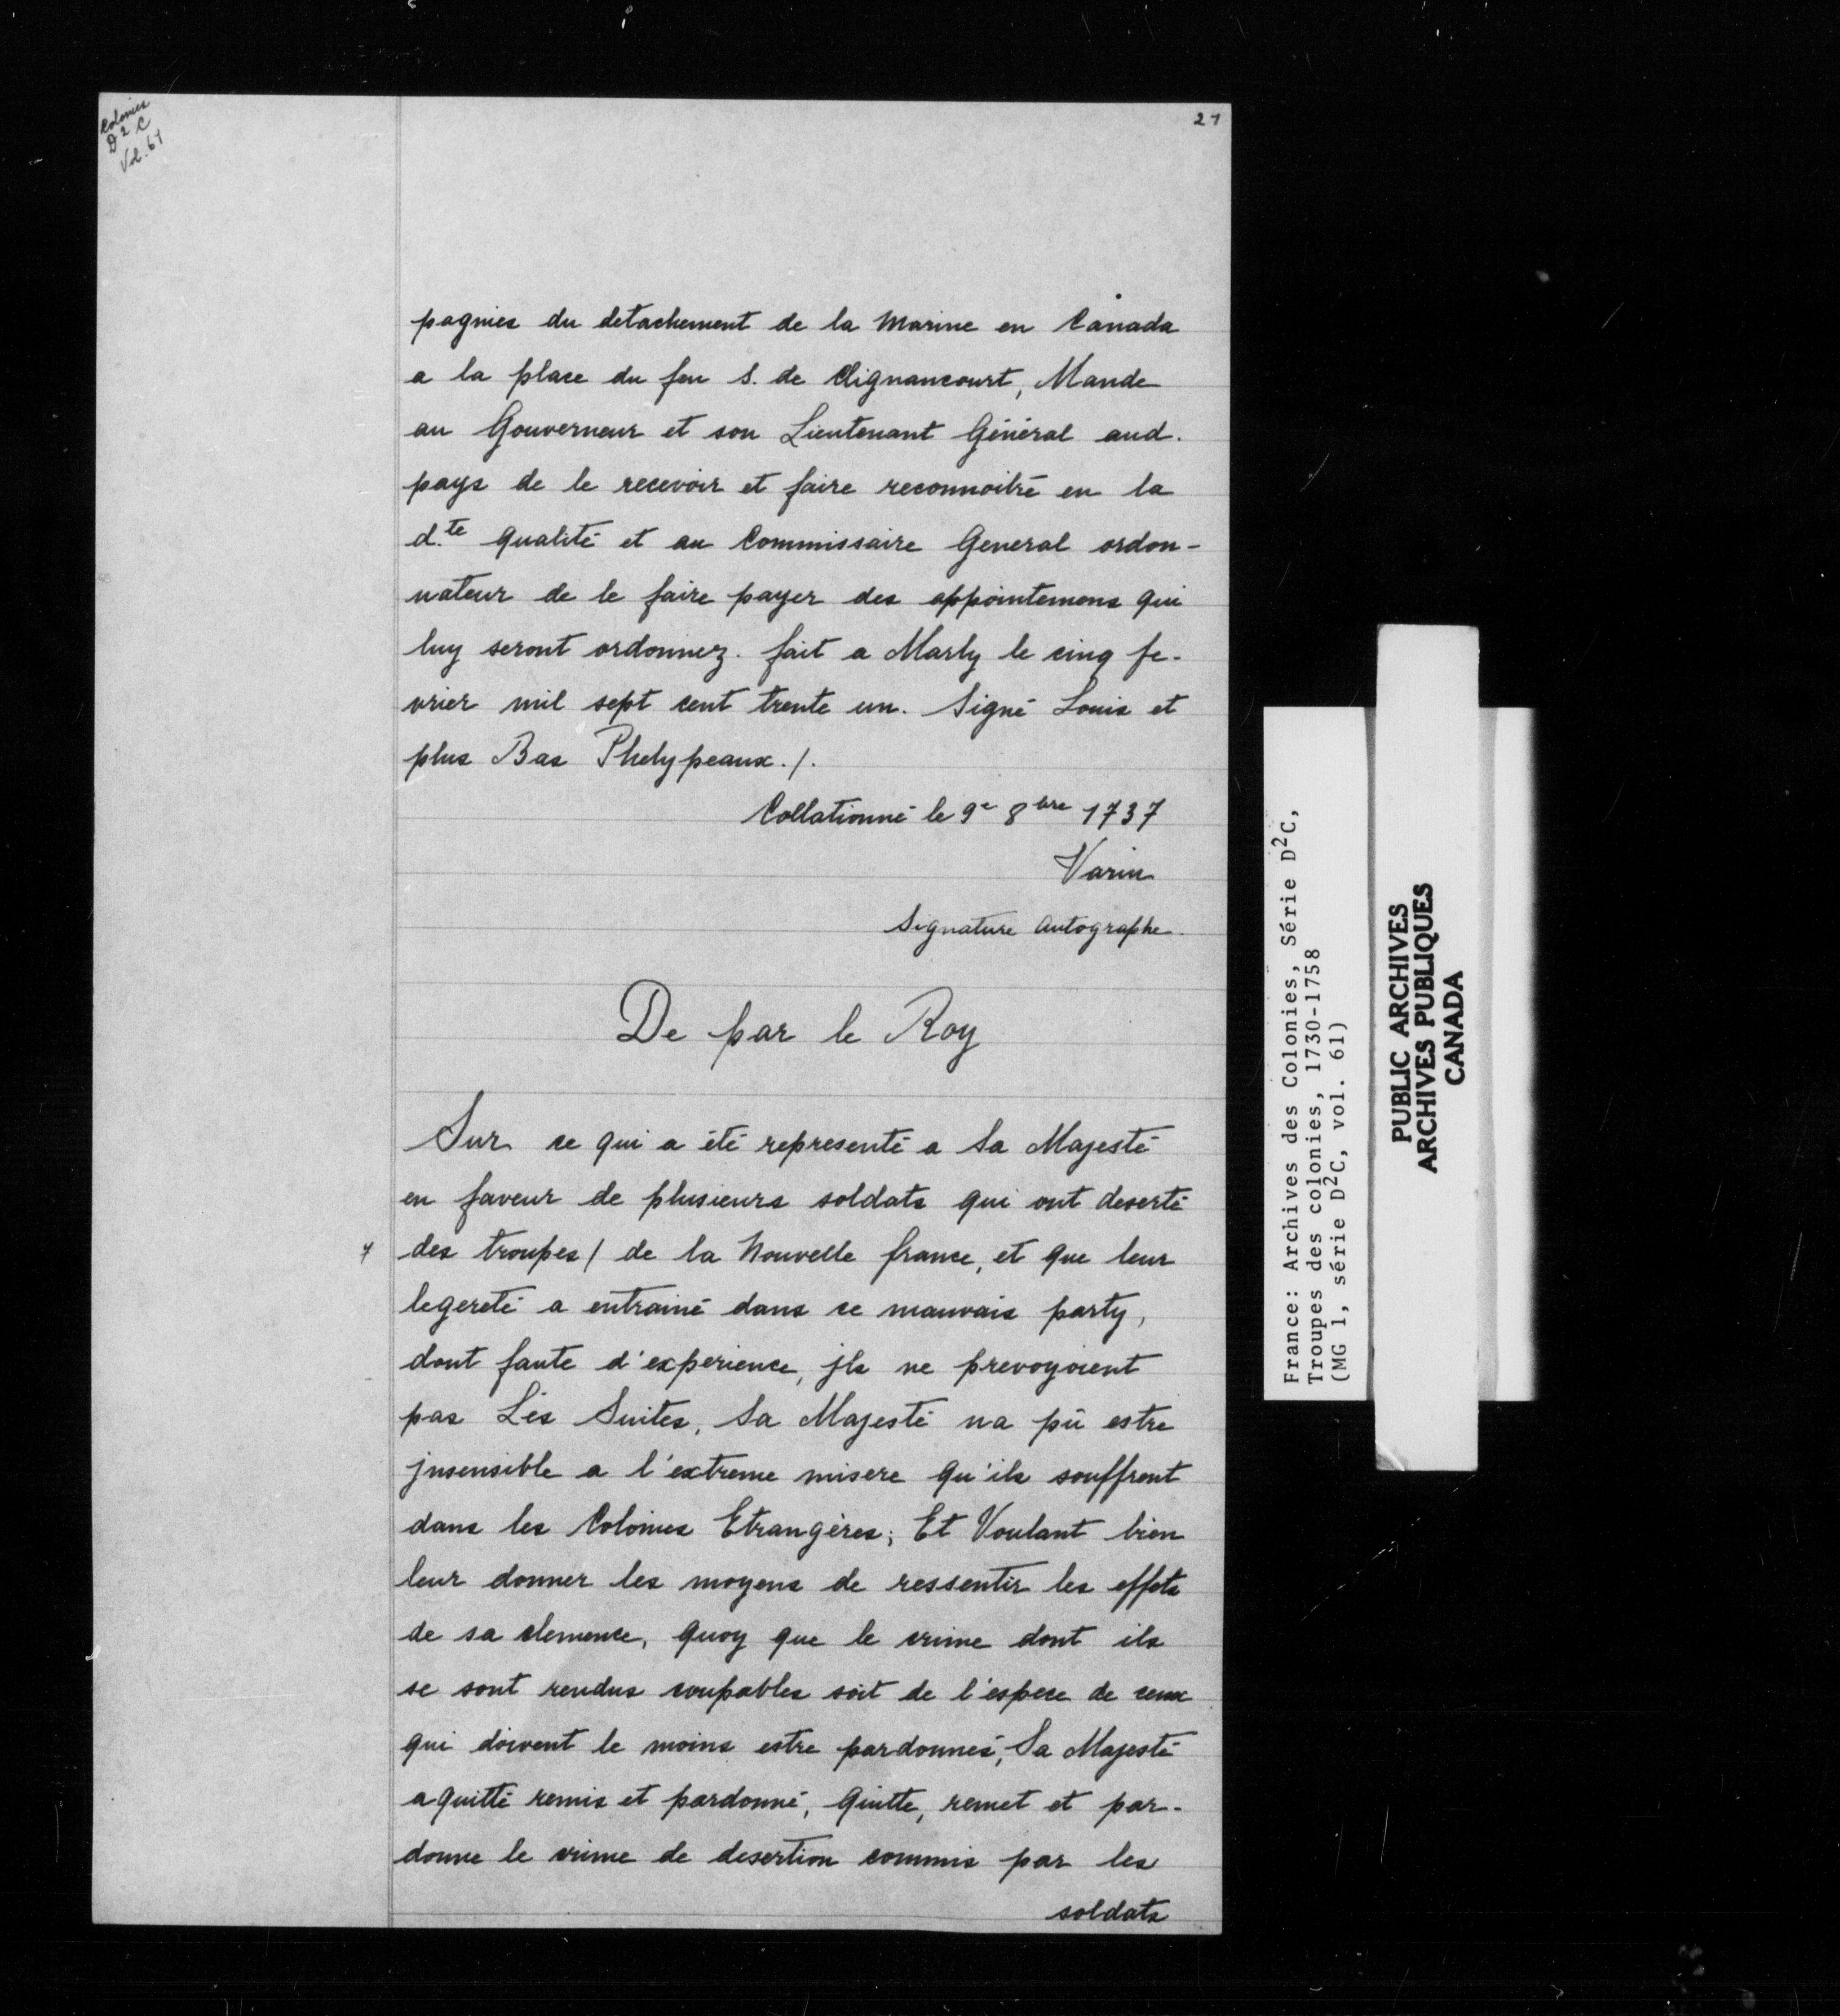 Colonies
D 2 C
Vol. 61
21
pagnies du detachement de la Marine en Canada
a la place du feu S. de Clignancourt, Mande
au Gouverneur et son Lieutenant Général aud.
pays de le recevoir et faire reconnoitré en la
d.te qualité et au Commissaire General ordon-
nateur de le faire payer des appointemens qui
luy seront ordonnez. fait a Marly le cinq fe-
vrier mil sept cent trente un. Signé Louis et
plus Bas Phelypeaux./.
Collationné le 9e 8bre 1737
Varin
Signature autographe.
De par le Roy
Sur ce qui a été representé a Sa Majesté
en faveur de plusieurs soldats qui ont deserté
des troupes / de la Nouvelle france, et que leur
legereté a entrainé dans ce mauvais party,
dont faute d'experience, jls ne prevoyoient
pas Les Suites, Sa Majesté na pû estre
jnsensible a l'extreme misere qu'ils souffrent
dans les Colonies Etrangères; Et Voulant bien
leur donner les moyens de ressentir les effets
de sa clemence, quoy que le crime dont ils
se sont rendus coupables soit de l'espece de ceux
qui doivent le moins estre pardonnés, Sa Majesté
a quitté remis et pardonné, quitte, remet et par-
donne le crime de desertion commis par les
soldats
France: Archives des Colonies, Série D2C,
Troupes des colonies, 1730-1758
(MG 1, série D2C, vol. 61)
PUBLIC ARCHIVES
ARCHIVES PUBLIQUES
CANADA